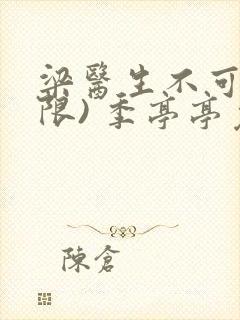 梁醫生不可
限) 季亭亭
陳倉